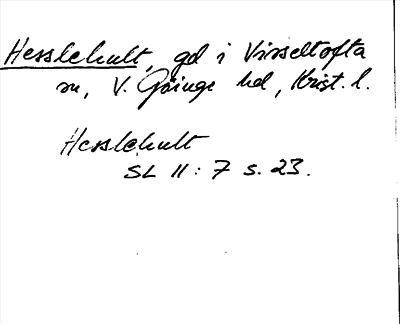 Hesslehult, gd i Visseltofta
sn, V. Göinge hd, Krist. l.
Hesslehult
SL II: 7 s. 23.